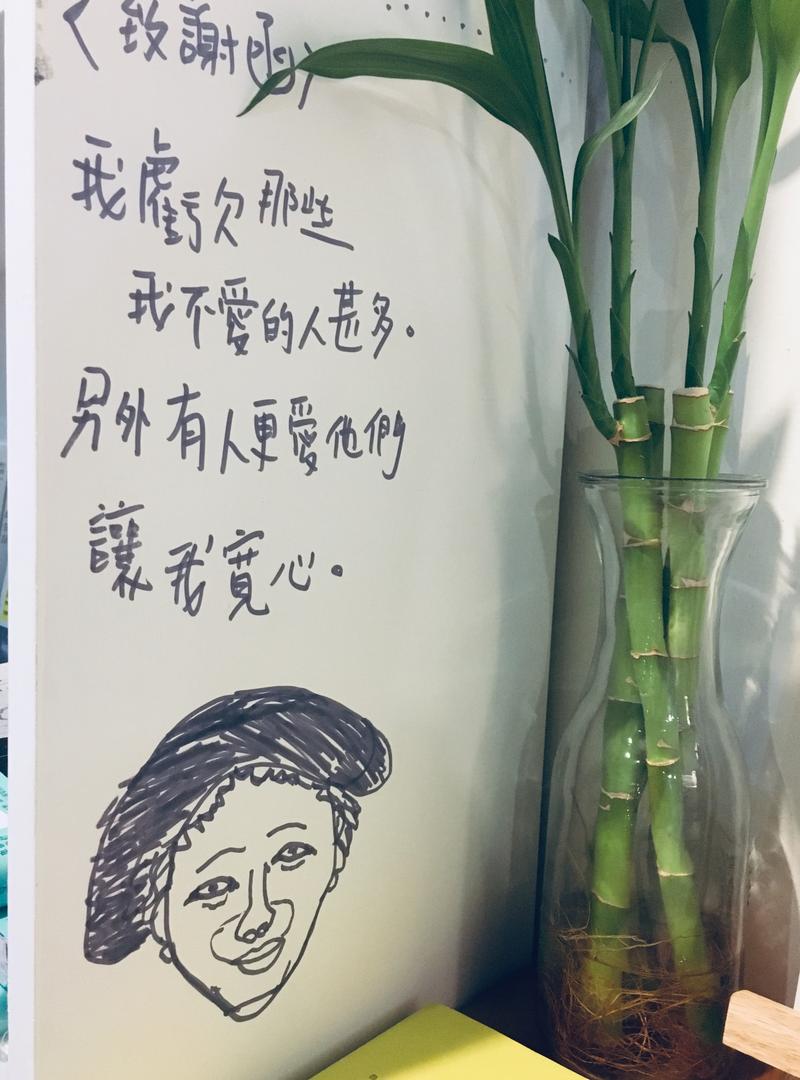 〈致謝函〉
我虧欠那些
我不愛的人甚多。
另外有人更愛他們
讓我寬心。